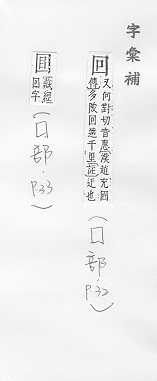 字彙補
回 又何對切音惠漢趙充國
傳多回遠千里註迂也
(口部.P32)
藏經
回字
(口部.P33)